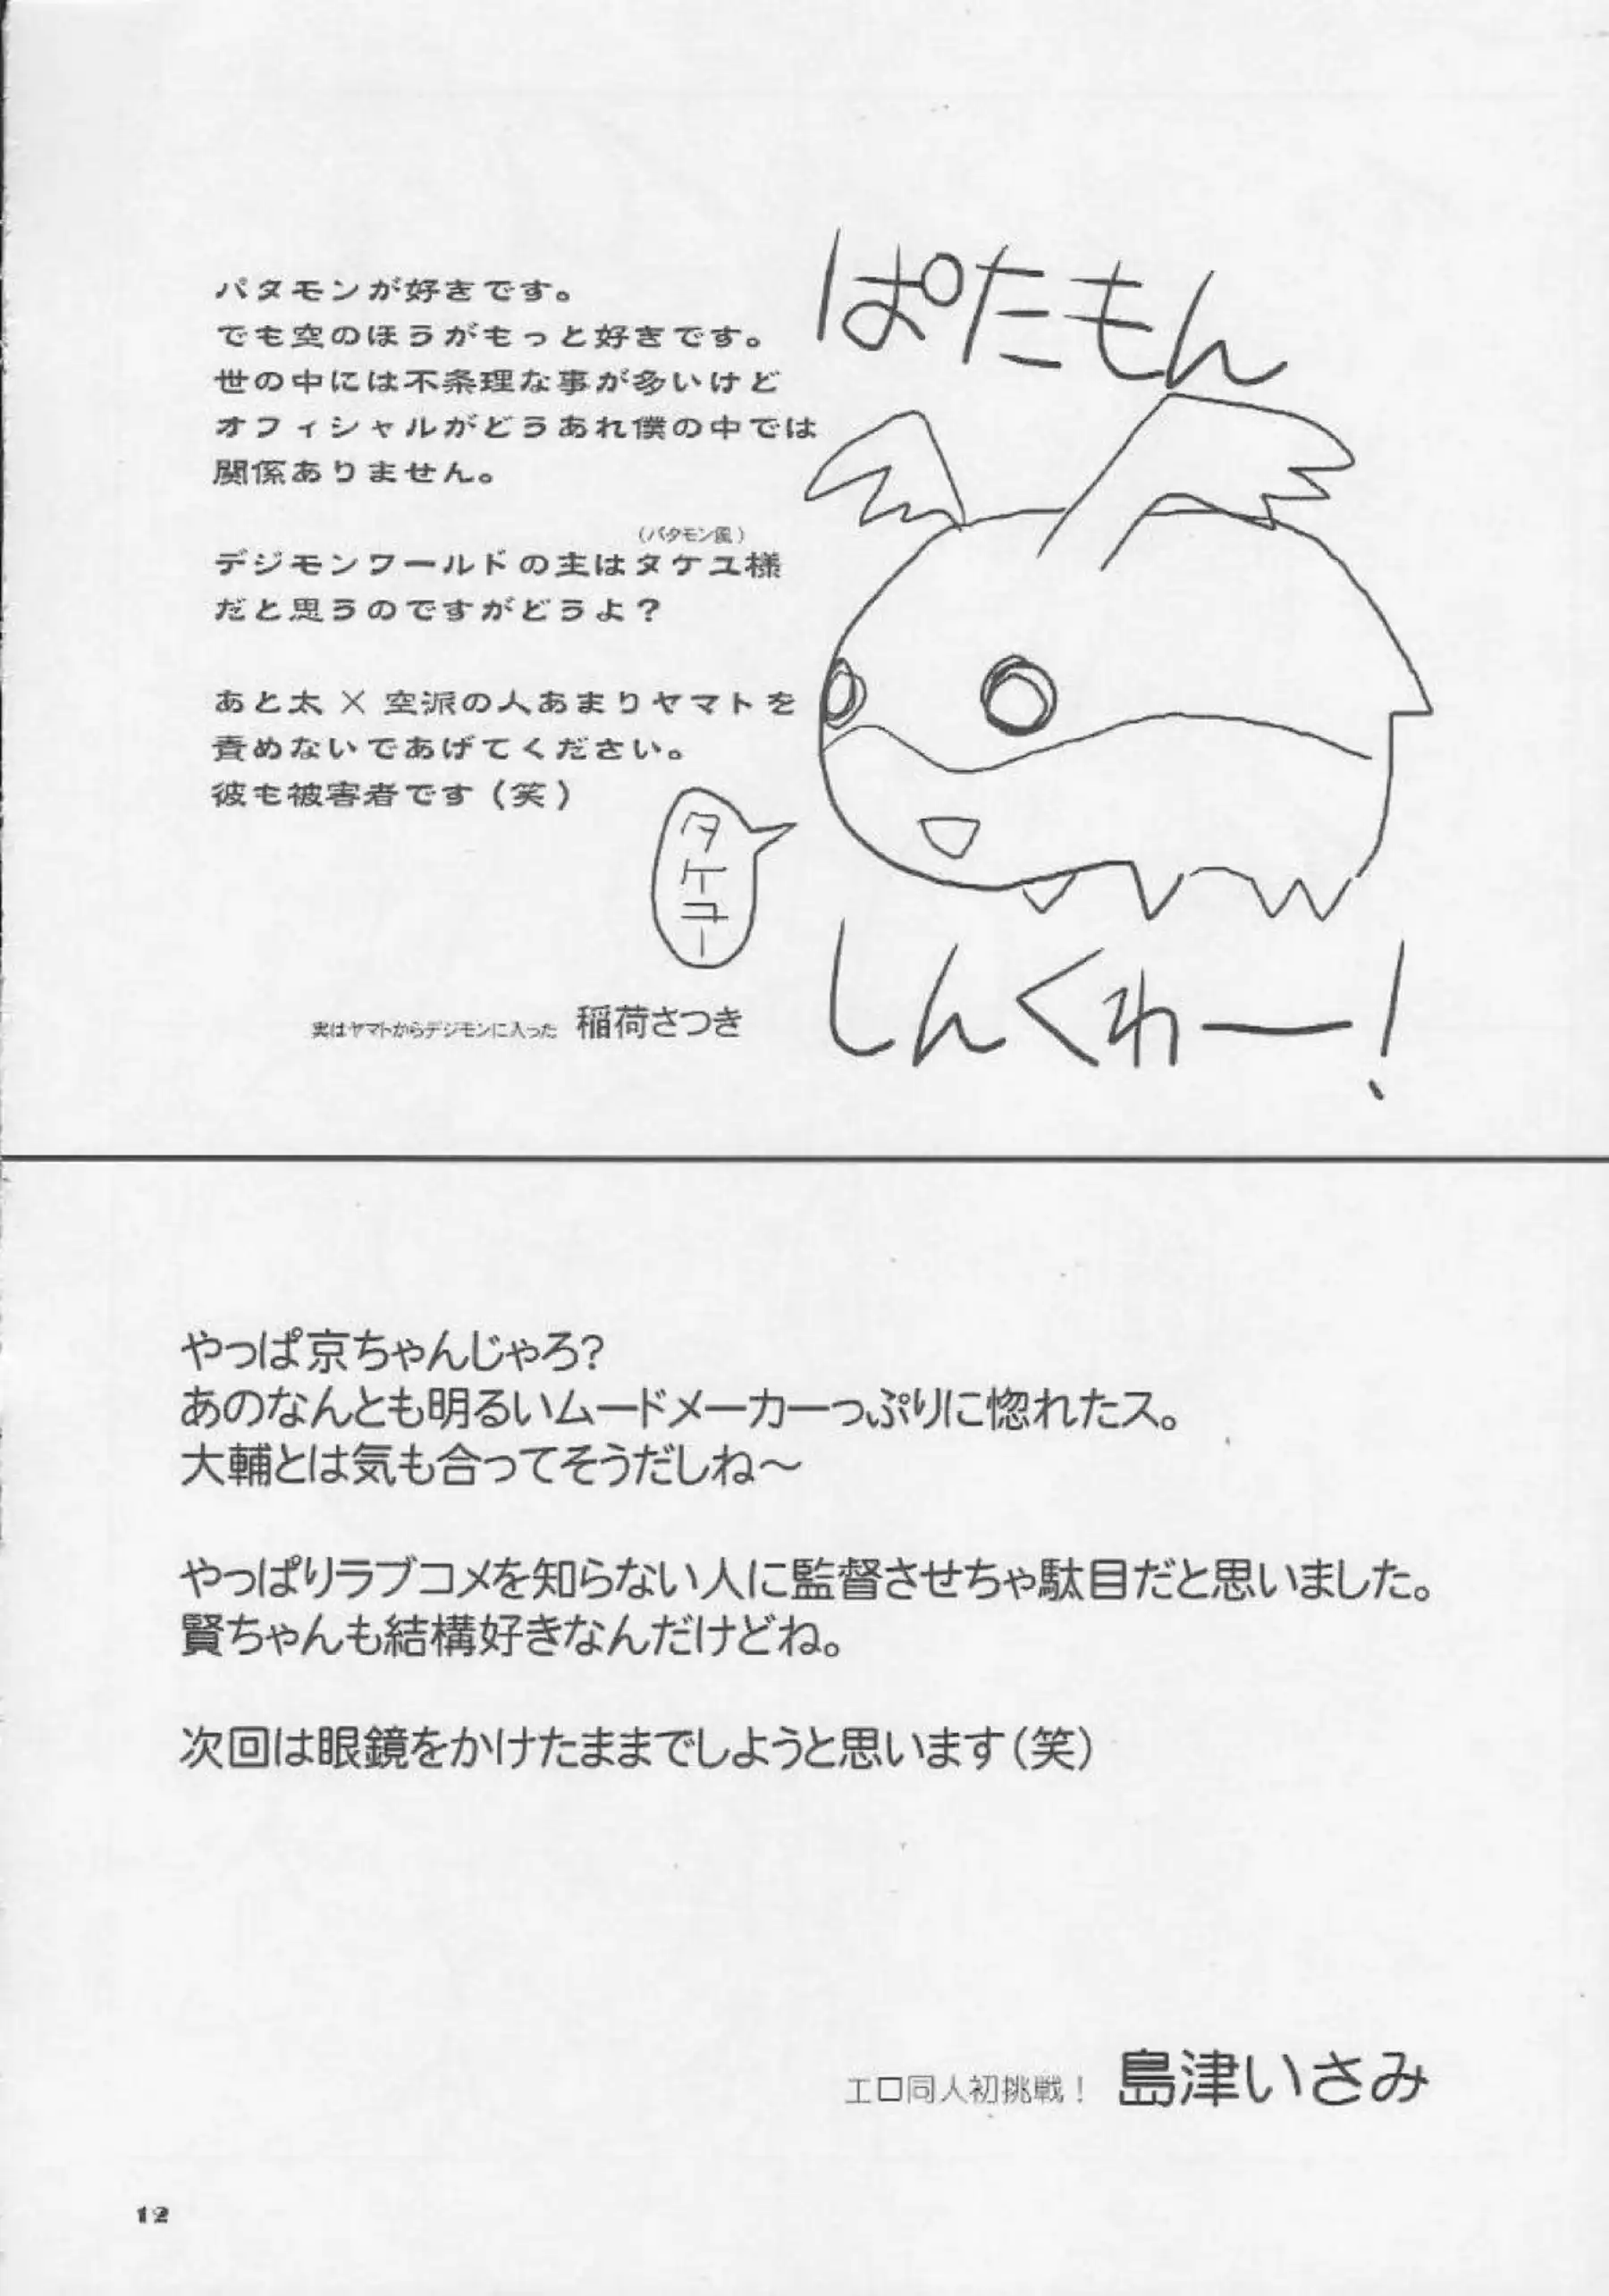 ぱたもん
パタモンが好きです。
でも空のほうがもっと好きです。
世の中には不条理な事が多いけど
オフィシャルがどうあれ僕の中では
関係ありません。
(パタモン風)
デジモンワールドの主はタケユ様
だと思うのですがどうよ？
あと太×空派の人あまりヤマトを
責めないであげてください。
彼も被害者です（笑）
タケユー
実はヤマトからデジモンに入った 稲荷さつき
しんくわー！
やっぱ京ちゃんじゃろ？
あのなんとも明るいムードメーカーっぷりに惚れたス。
大輔とは気も合ってそうだしね〜
やっぱりラブコメを知らない人に監督させちゃ駄目だと思いました。
賢ちゃんも結構好きなんだけどね。
次回は眼鏡をかけたままでしようと思います（笑）
エロ同人初挑戦！ 島津いさみ
12